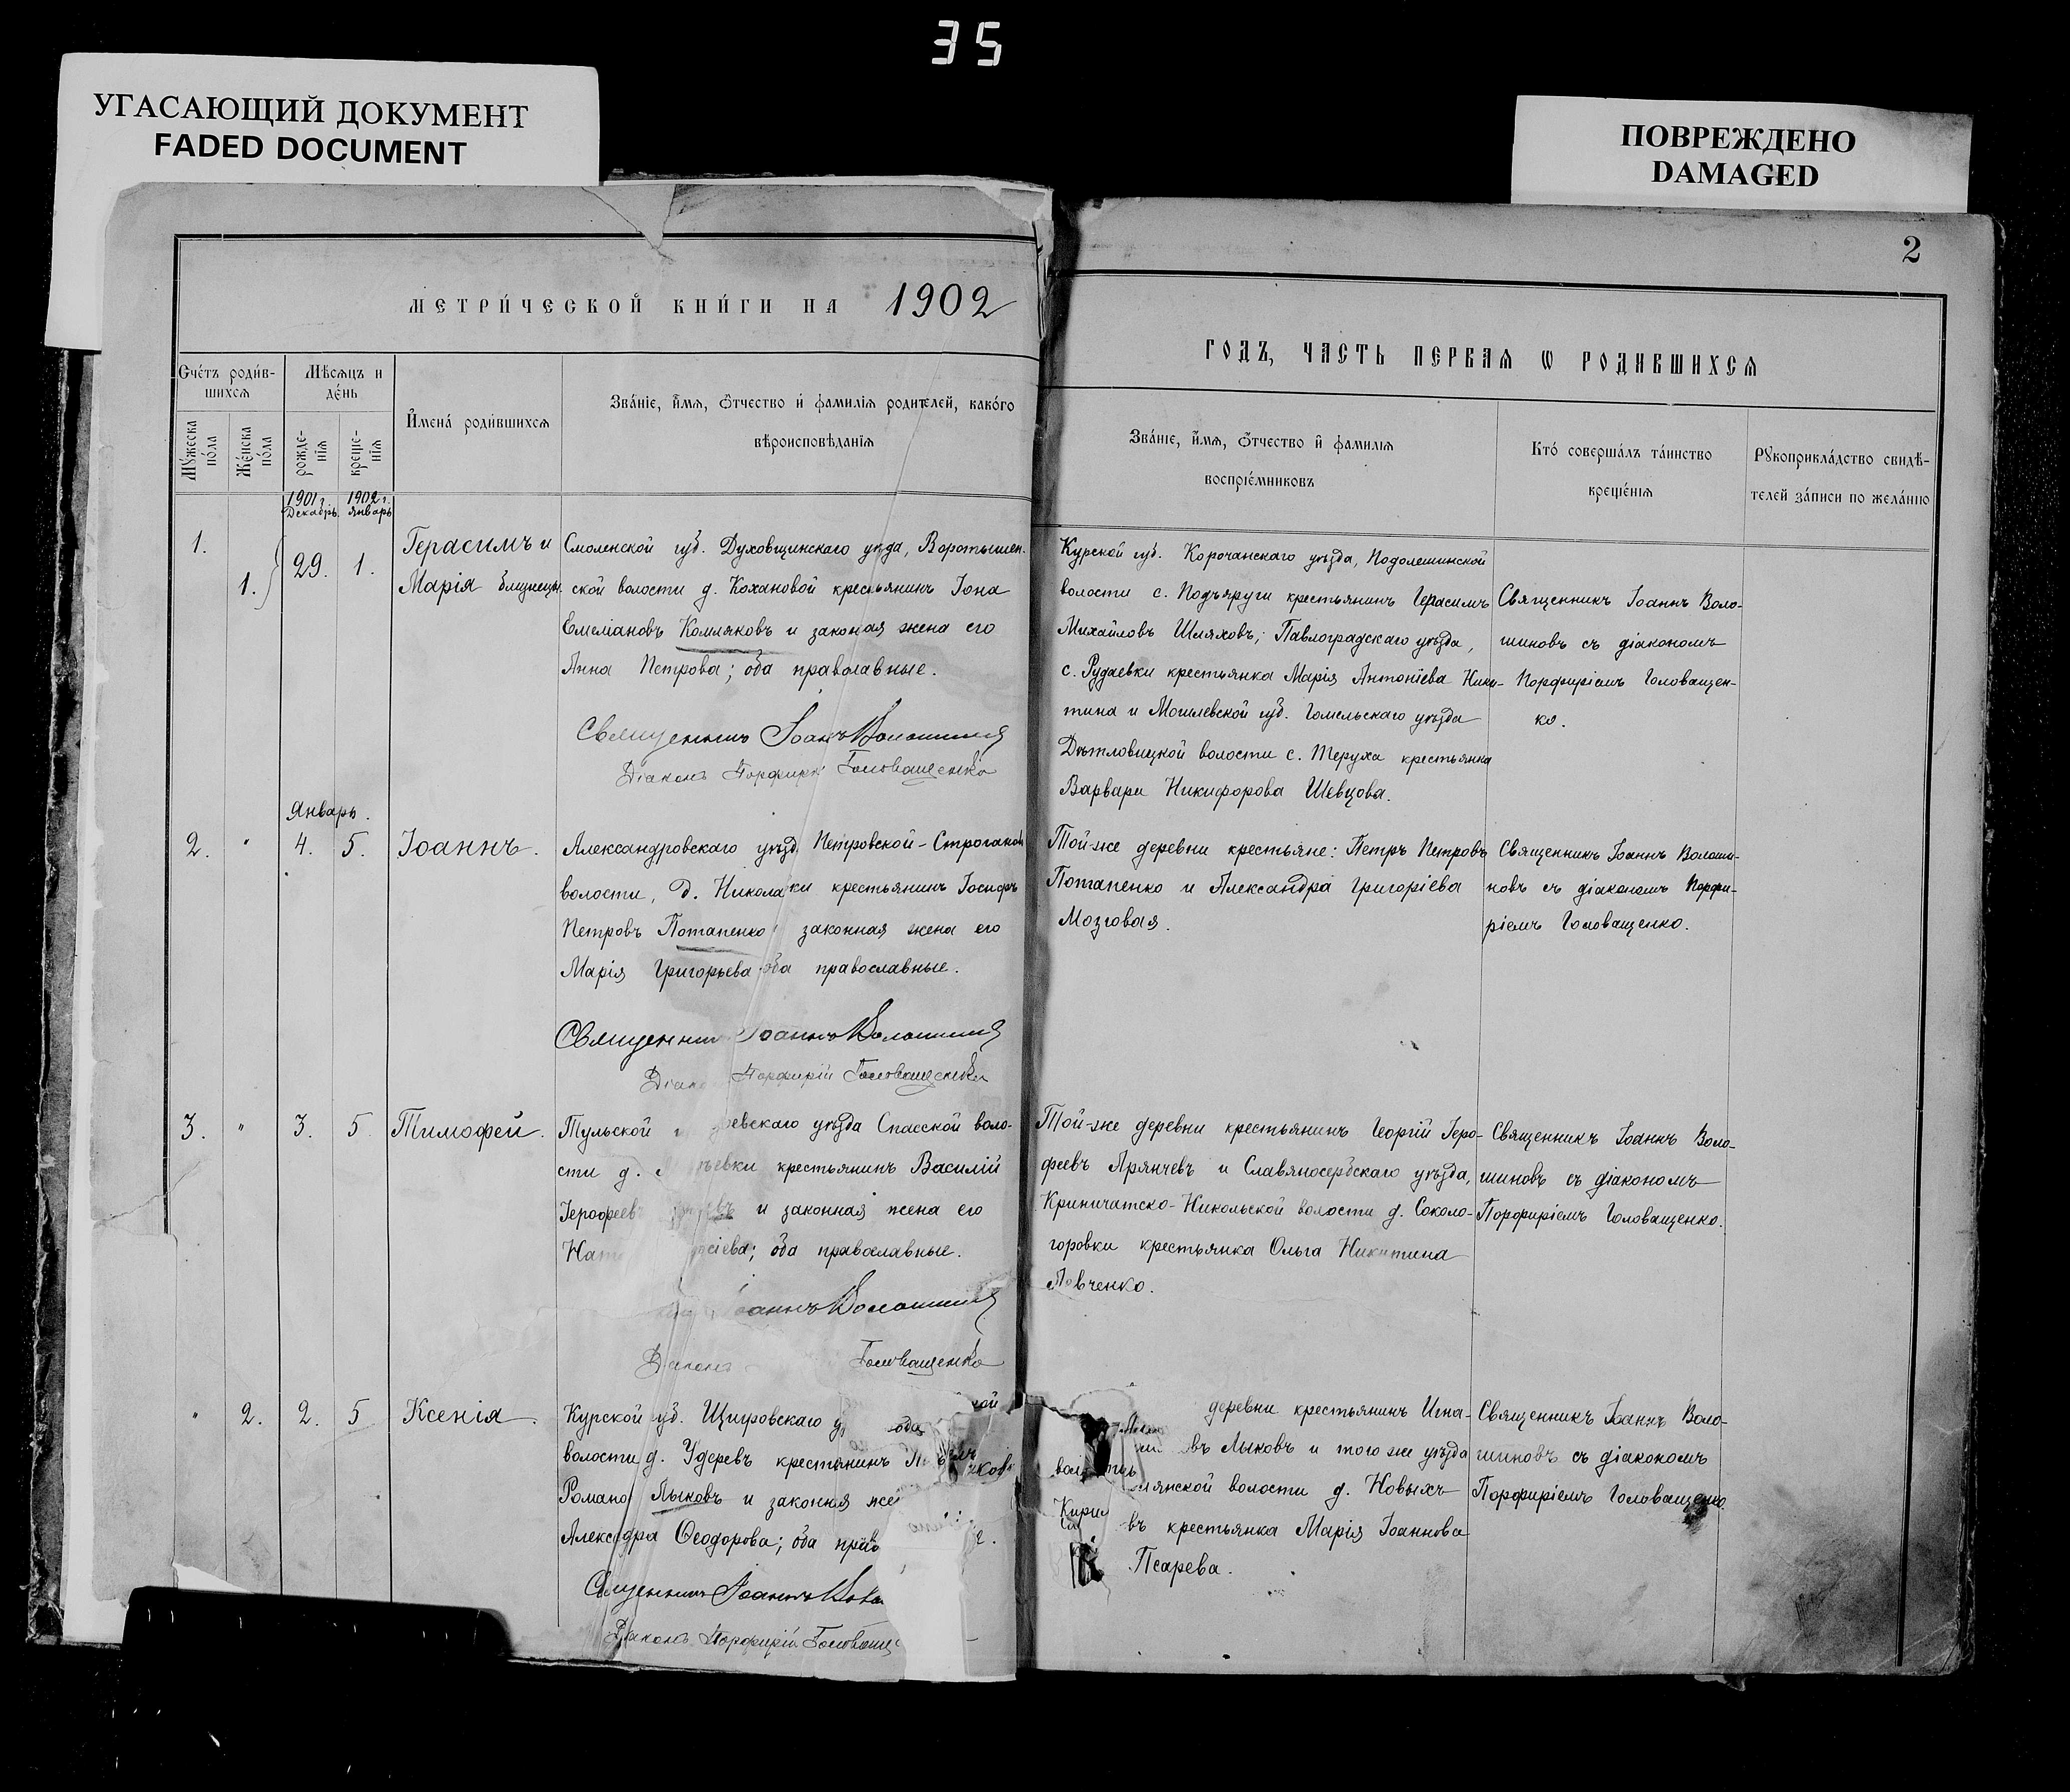 35
УГАСАЮЩИЙ ДОКУМЕНТ
FADED DOCUMENT
ПОВРЕЖДЕНО
DAMAGED
2
МЕТРИ́ЧЕСКОЙ КНИ́ГИ НА 1902
ГОДЪ, ЧАСТЬ ПЕРВАЯ Ѡ РОДИВШИХСѦ
Счéтъ роди́в-
шихсѧ
Мꙋ́жеска
по́ла
Же́нска
по́ла
Мѣ́сѧцъ и
де́нь
рожде-
нїѧ
креще-
нїѧ
И҆мена́ роди́вшихсѧ
Зва́нїе, и҆́мѧ, ѻ҆́тчество и҆ фами́лїѧ роди́телей, како́гѡ
вѣроисповѣ́данїѧ
Зва́нїе, и҆́мѧ, ѻ҆́тчество и҆ фами́лїѧ
воспрїе́мниковъ
Кто́ соверша́лъ та́инство
креще́нїѧ
Рꙋкоприкла́дство свидѣ́-
телей за́писи по жела́нїю
1901 г. Декабрь.
1902 г. Январь
1.
1.
29.
1.
Герасимъ и
Марія близнецы.
Смоленской губ. Духовщинскаго уѣзда, Воротышен-
ской волости д. Кохановой крестьянинъ Іона
Емеліановъ Комляковъ и законая жена его
Анна Петрова; оба православные.
Священникъ Іоаннъ Волошиновъ
Діаконъ Порфирій Головащенко
Курской губ. Корочанскаго уѣзда, Подолешинской
волости с. Подъяруги крестьянинъ Герасимъ
Михайловъ Шляховъ; Павлоградскаго уѣзда,
с. Рудаевки крестьянка Марія Антоніева Ники-
тина и Могилевской губ. Гомельскаго уѣзда
Дѣтловицкой волости с. Теруха крестьянка
Варвара Никифорова Шевцова.
Священникъ Іоаннъ Воло-
шиновъ съ діакономъ
Порфиріемъ Головащен-
ко.
Январь.
2.
"
4.
5.
Іоаннъ.
Александровскаго уѣзд Петровской-Строгакон
волости, д. Никола ки крестьянинъ Іосифъ
Петровъ Потапенко законная жена его
Марія Григорьева оба православные.
Священни Іоаннъ Волошиновъ
Діако Порфирій Головащенко
Той-же деревни крестьяне: Петръ Петровъ
Потапенко и Александра Григоріева
Мозговая.
Священникъ Іоаннъ Волоши-
новъ съ діакономъ Порфи-
ріемъ Головащенко.
3.
"
3.
5
Тимофей.
Тульской г ревскаго уѣзда Спасской воло-
сти д. ьевки крестьянинъ Василій
Іерофеев въ и законная жена его
Нат сіева; оба православные.
Іоаннъ Волошиновъ
Діаконъ Головащенко
Той-же деревни крестьянинъ Георгій Іеро-
феевъ Арянчевъ и Славяносербскаго уѣзда,
Криничатско-Никольской волости д. Соколо-
горовки крестьянка Ольга Никитина
Левченко.
Священникъ Іоаннъ Воло-
шиновъ съ діакономъ
Порфиріемъ Головащенко.
"
2.
2.
5
Ксенія.
Курской губ. Щигровскаго у ой
волости д. Удеревъ крестьянинъ
Романо Лыковъ и законная же
Александра Ѳеодорова; оба прав
Священникъ Іоаннъ Воло
Діаконъ Порфирій Головаще
деревни крестьянинъ Игна-
въ Лыковъ и того же уѣзда
лянской волости д. Новыхъ
въ крестьянка Марія Іоаннова
Псарева.
Священникъ Іоаннъ Воло-
шиновъ съ діакономъ
Порфиріемъ Головащенко.